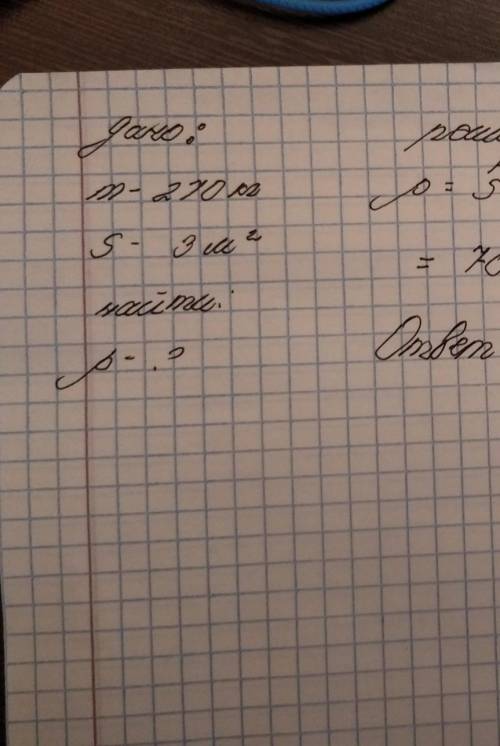 Дано:
m - 210 кг
S - 3 м²
найти:
p - ?
реш
p =
= 70
Ответ